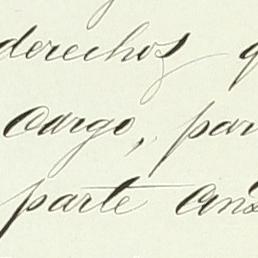 derechos
cargo, par
parte